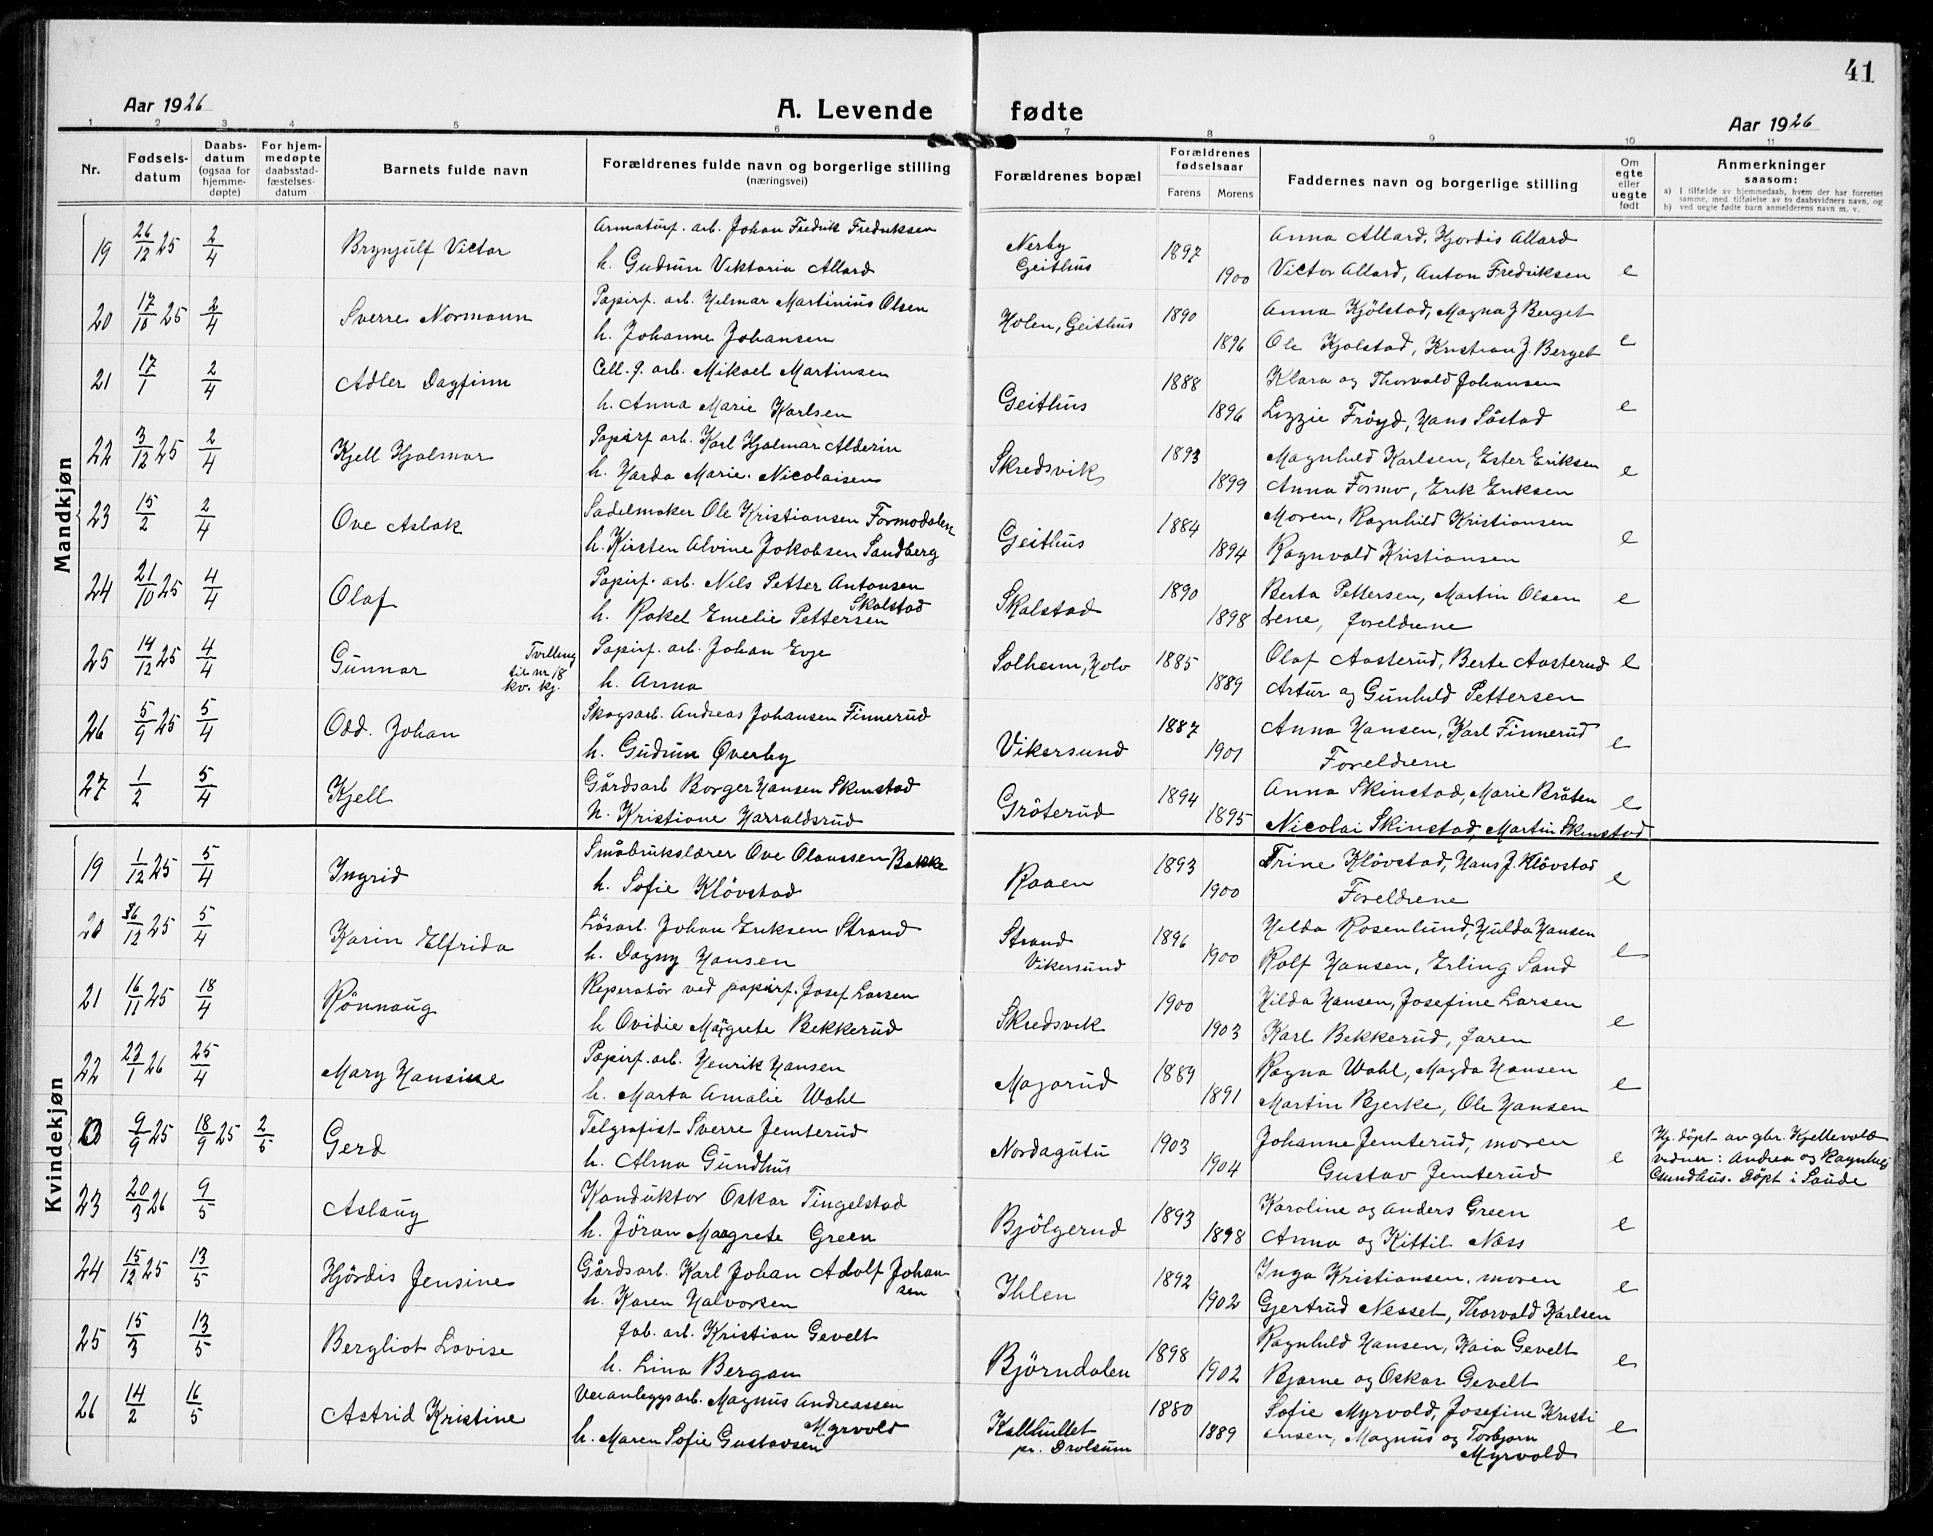 41
Aar 1926
A. Levende fødte
Aar 1926
1 2 3 4 5 6 7 8 9 10 11
Nr.
Fødsels-
datum
Daabs-
datum
(ogsaa for
hjemme-
døpte)
For hjem-
medøpte
daabsstad-
fæstelses-
datum
Barnets fulde navn
Forældrenes fulde navn og borgerlige stilling
(næringsvei)
Forældrenes bopæl
Forældrenes
fødselsaar
Farens Morens
Faddernes navn og borgerlige stilling
Om
egte
eller
uegte
født
Anmerkninger
saasom:
a) I tilfælde av hjemmedaab, hvem der har forrettet
samme, med tilføielse av to daabsvidners navn, og
b) ved uegte fødte barn anmelderens navn m. v.
Mandkjøn
19 26/12 25 2/4 Brynjulf Victor
Armaturf. arb. Johan Fredrik Fredriksen
h. Gudrun Viktoria Allard
Nerby
Geithus
1897 1900
Anna Allard, Hjordis Allard
Victor Allard, Anton Fredriksen e
20 17/10 25 2/4 Sverre Normann
Papirf. arb. Hilmar Martinius Olsen
h. Johanne Johansen
Holen, Geithus
1890 1896
Anna Kjölstad, Magna J Berget
Ole Kjolstad, Kristian J. Berget e
21 17/1 2/4 Adler Dagfinn
Cell. f. arb. Mikael Martinsen
h. Anna Marie Karlsen
Geithus
1888 1896
Klara og Thorvald Johansen
Lizzie Fröyd, Hans Såstad e
22 3/12 25 2/4 Kjell Hjalmar
Papirf arb. Karl Hjalmar Alderin
h. Harda Marie Nicolaisen
Skredsvik
1893 1899
Magnhild Karlsen, Ester Eriksen
Anna Formo, Erik Eriksen e
23 15/2 2/4 Ove Aslak
Sadelmaker Ole Kristiansen Formodalen
h. Kirsten Alvine Jokobsen Sandberg
Geithus
1884 1894
Moren, Ragnhild Kristiansen
Ragnvald Kristiansen e
24 21/10 25 4/4 Olaf
Papirf. arb. Nils Petter Antonsen
Skalstad
h. Rakel Emelie Pettersen
Skalstad
1890 1898
Berta Pettersen, Martin Olsen
Lene, foreldrene e
25 14/12 25 4/4 Gunnar
Tvilling
til nr 18
kv. kj.
Papirf. arb. Johan Evje
h. Anna
Solheim, Holv
1885 1889
Olaf Aasterud, Berte Aasterud
Artur og Gunhild Pettersen e
26 5/9 25 5/4 Odd. Johan
Skogsarb. Andreas Johansen Finnerud
h. Gudrun Øverby
Vikersund
1887 1901
Anna Hansen, Karl Finnerud
Foreldrene e
27 1/2 5/4 Kjell
Gårdsarb Borger Hansen Skinstad
h. Kristiane Harraldsrud
Gröterud
1894 1895
Anna Skinstad, Marie Bråten
Nicolai Skinstad, Martin Skinstad e
Kvindekjøn
19 1/12 25 5/4 Ingrid
Småbrukslærer Ove Olaussen Bakke
h. Sofie Klövstad
Raaen
1893 1900
Trine Klövstad, Hans J. Klövstad
Foreldrene e
20 12 25 5/4 Karin Elfrida
Lösarb. Johan Eriksen Strand
h. Dagny Hansen
Strand
Vikersund
1896 1900
Hilda Rosenlund, Hulda Hansen
Rolf Hansen, Erling Sand e
21 16/11 25 18/4 Rönnaug
Reperatör ved papirf. Josef Larsen
h Ovidie Margrete Bekkerud
Skredsvik
1900 1903
Hilda Hansen, Josefine Larsen
Karl Bekkerud, faren e
22 23/1 26 25/4 Mary Hansine
Papirf. arb. Henrik Hansen
h. Marta Amalie Wahl
Magorud
1889 1891
Ragna Wahl, Magda Hansen
Martin Bjerke, Ole Hansen e
9/9 25 18/9 25 2/5 Gerd
Telgrafist Sverre Jemterud
h. Alma Gundhus
Nordagutu
1903 1904
Johanne Jemterud, moren
Gustav Jemterud e
Hj. döpt av gbr. Kjellevold
vidner: Andrea og Ragnhild
Gundhus. Döpt i Saude
23 20/3 26 9/5 Aslaug
Konduktör Oskar Tingelstad
h. Jöran Margrete Green
Bjölgerud
1893 1898
Karoline og Anders Green
Anna og Kittil Næss e
24 15/12 25 13/5 Hjördis Jensine
Gårdsarb. Karl Johan Adolf Johan-
sen
h. Karen Halvorsen
Ihlen
1892 1902
Inga Kristiansen, moren
Gjertrud Nesset, Thorvald Karlsen e
25 15/3 13/5 Bergliot Lovise
fab. arb. Kristian Gevelt
h. Lina Bergan
Björndalen
1898 1902
Ragnhild Hansen, Kaia Gevelt
Bjarne og Oskar Gevelt e
26 14/2 16/5 Astrid Kristine
Veranleggsarb. Magnus Andreassen
Myrvold
h. Maren Sofie Gustavsen
Kallhullet
pr. Drolsum
1880 1889
Sofie Myrvold, Josefine Kristi
ansen, Magnus og Torbjørn
Myrvold e